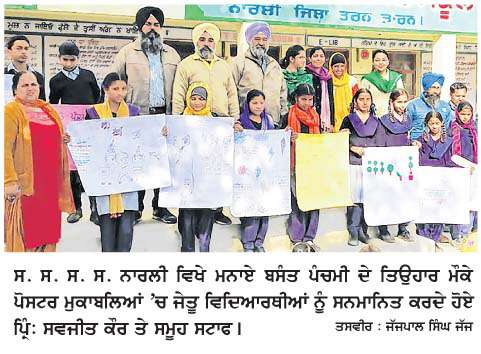 ਨਾਰਲੀ ਜਿਲਾ ਤਰਨ ਤਾਰਨ।
E-LIB
ਸ. ਸ. ਸ. ਸ. ਨਾਰਲੀ ਵਿਖੇ ਮਨਾਏ ਬਸੰਤ ਪੰਚਮੀ ਦੇ ਤਿਉਹਾਰ ਮੌਕੇ
ਪੋਸਟਰ ਮੁਕਾਬਲਿਆਂ 'ਚ ਜੇਤੂ ਵਿਦਿਆਰਥੀਆਂ ਨੂੰ ਸਨਮਾਨਿਤ ਕਰਦੇ ਹੋਏ
ਪ੍ਰਿੰ: ਸਵਜੀਤ ਕੌਰ ਤੇ ਸਮੂਹ ਸਟਾਫ।
ਤਸਵੀਰ : ਜੱਜਪਾਲ ਸਿੰਘ ਜੱਜ